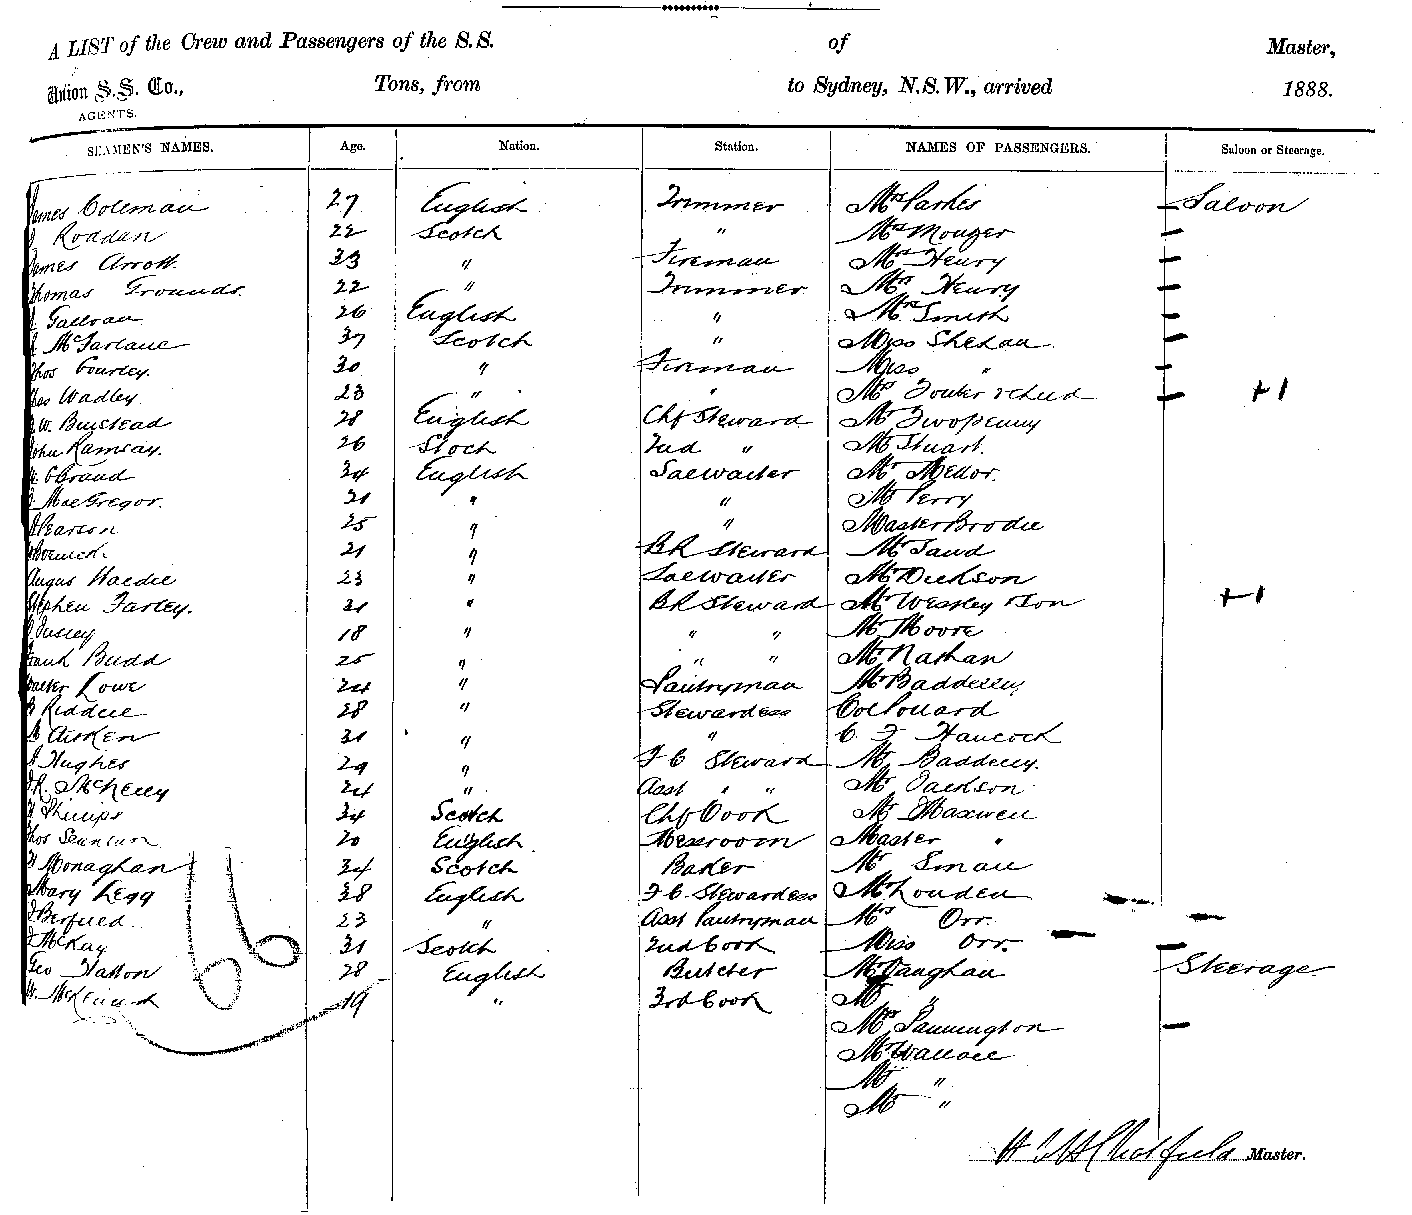 A LIST of the Crew and Passengers of the S.S. of Master,
Union S.S. Co., Tons, from to Sydney, N.S.W., arrived 1888.
AGENTS.
SEAMEN'S NAMES. Age. Nation. Station. NAMES OF PASSENGERS. Saloon or Steerage.
James Coleman 27 English Trimmer Mrs Parkes — Saloon
Roddan 22 Scotch " Mrs Monger —
James Arrott 33 " Fireman Mrs Henry —
Thomas Grounds. 22 " Trimmer Mrs Henry —
26 English " Mrs Smith —
McFarlane 37 Scotch " Miss Shehan —
Thos Gourley. 30 " Fireman Miss " —
Wadley 23 " " Mrs — +1
W. Buistead 28 English Chf Steward Mr Twopenny
John Ramsay. 26 Scoch 2nd " Mr Stuart.
34 English Salwaiter Mr Mellor.
MacGregor. 21 " " Mr Perry
Pearson 25 " " Master Brodie
21 " BR Steward Mr
Angus Haldie 23 " Salwaiter Mr Dickson
Stephen Farley. 31 " BR Steward Mr Westley & Son +1
18 " " " Mr Moore
Frank Budd 25 " " " Mr Nathan
Walter Lowe 24 " Pantryman Mr Baddeley
Riddell 28 " Stewardess Col Pollard
Aitken 31 " " C F Hancock
Hughes 29 " F C Steward Mr Baddeley.
McNelly 24 " Asst " " Mr Jackson
Phillips 34 Scotch Chf Cook Mr Maxwell
Thos 20 English Messroom Master "
Monaghan 34 Scotch Baker Mr Small
Mary Legg 38 English F C. Stewardess Mr Louden
23 " Asst Pantryman Mrs Orr. —
McKay 31 Scotch 2nd Cook Miss Orr. —
Geo Hatton 28 English Butcher Mr Vaughan Steerage
19 " 3rd Cook Mr "
66
Mrs Pannington —
Mr Wallace
Mr "
Mr "
Chatfield Master.